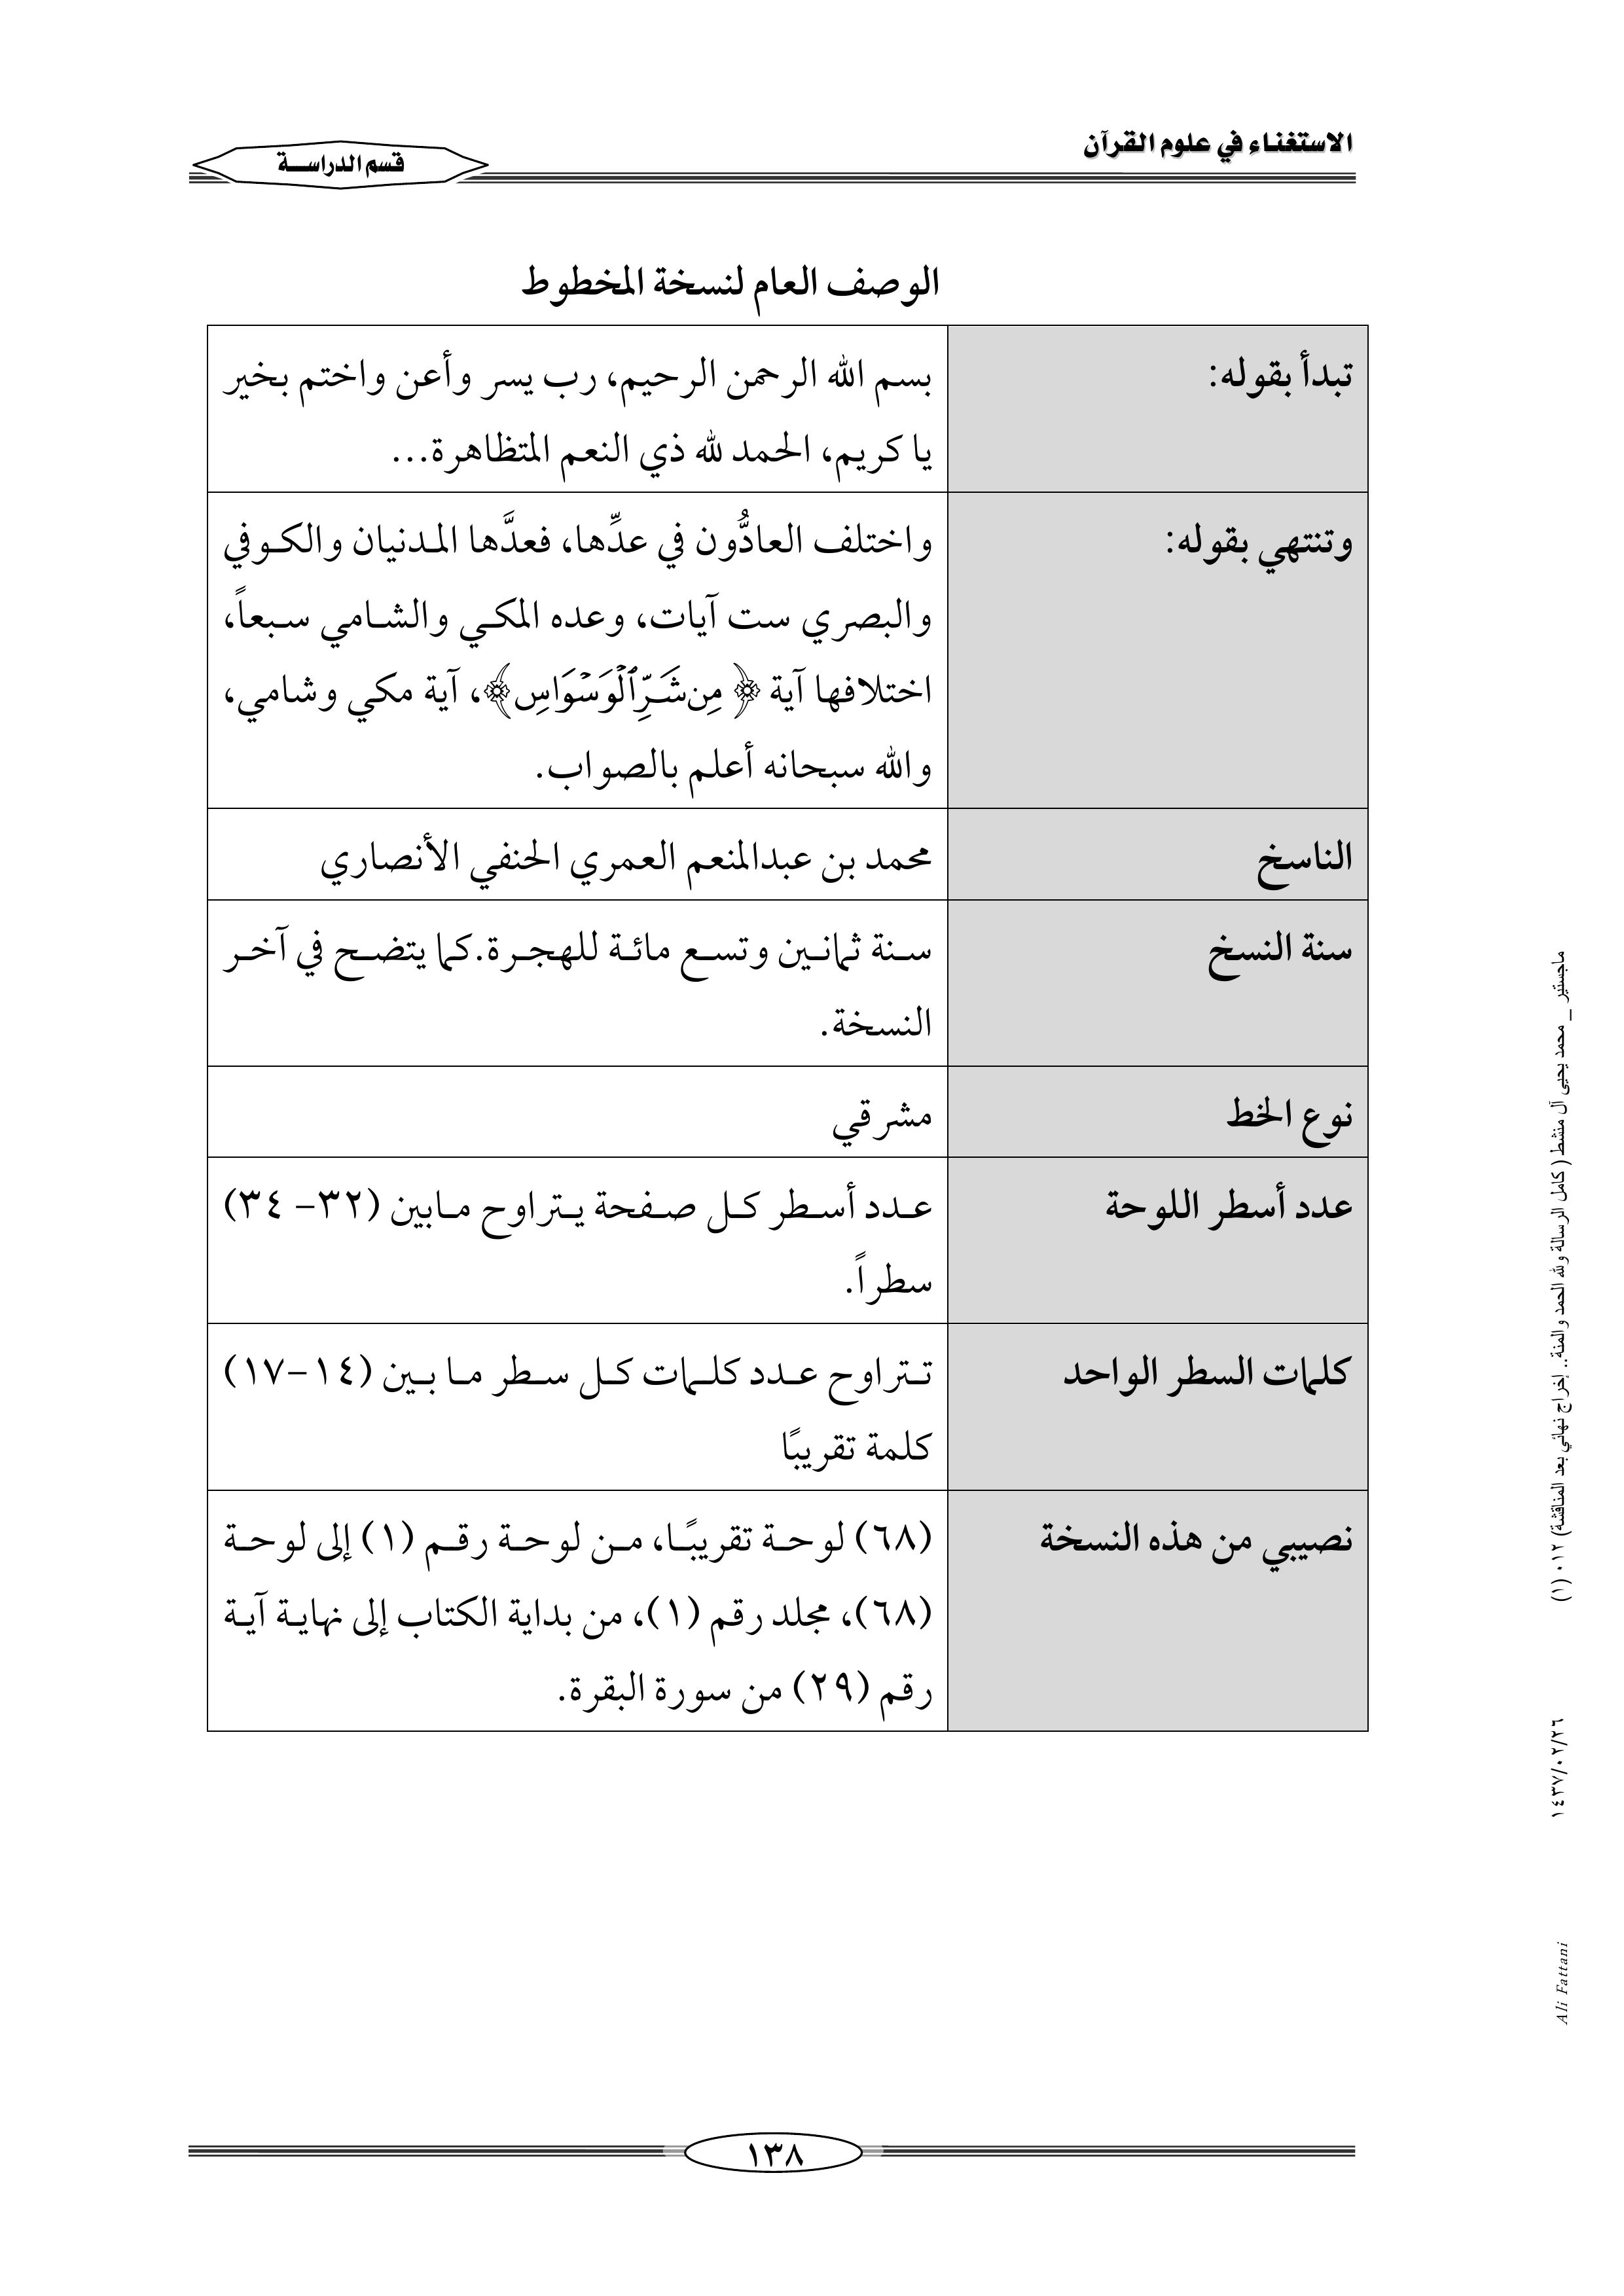 الاستغناء في علوم القرآن
قسم الدراســة
الوصف العام لنسخة المخطوط
تبدأ بقوله:
بسم الله الرحمن الرحيم، رب يسر وأعن واختم بخير
يا كريم، الحمد لله ذي النعم المتظاهرة...
وتنتهي بقوله:
واختلف العادُّون في عدِّها، فعدَّها المدنيان والكوفي
والبصري ست آيات، وعده المكي والشامي سبعاً،
اختلافها آية ﴿مِن شَرِّ ٱلْوَسْوَاسِ﴾، آية مكي وشامي،
والله سبحانه أعلم بالصواب.
الناسخ
محمد بن عبدالمنعم العمري الحنفي الأنصاري
سنة النسخ
سنة ثمانين وتسع مائة للهجرة.كما يتضح في آخر
النسخة.
نوع الخط
مشرقي
عدد أسطر اللوحة
عدد أسطر كل صفحة يتراوح مابين (٣٢- ٣٤)
سطراً.
كلمات السطر الواحد
تتراوح عدد كلمات كل سطر ما بين (١٤-١٧)
كلمة تقريبًا
نصيبي من هذه النسخة
(٦٨) لوحة تقريبًا، من لوحة رقم (١) إلى لوحة
(٦٨)، مجلد رقم (١)، من بداية الكتاب إلى نهاية آية
رقم (٢٩) من سورة البقرة.
ماجستير _ محمد يحيى آل منشط ( كامل الرسالة ولله الحمد والمنة.. إخراج نهائي بعد المناقشة) ٠١٢ (١)
١٤٣٧/٠٢/٢٦
Ali Fattani
١٣٨